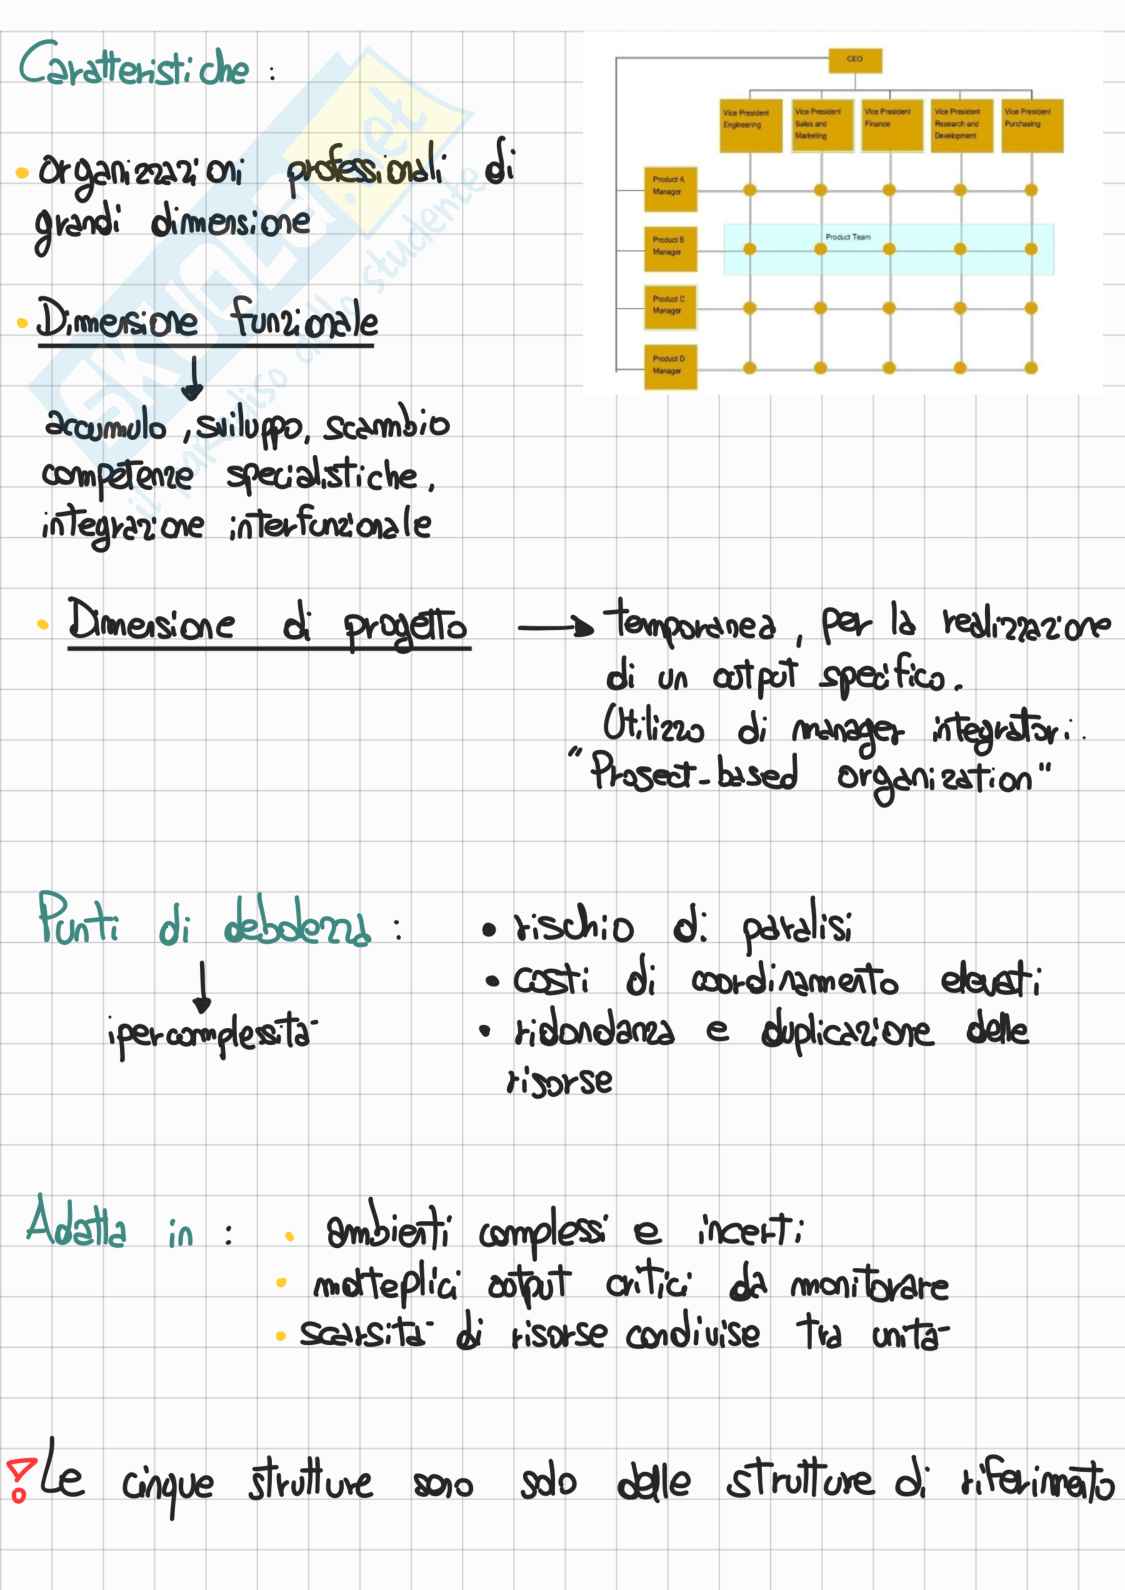 Caratteristiche :
• organizzazioni professionali di
grandi dimensione
• Dimensione funzionale
accumulo, sviluppo, scambio
competenze specialistiche,
integrazione interfunzionale
CEO
Vice President Engineering
Vice President Sales and Marketing
Vice President Finance
Vice President Research and Development
Vice President Purchasing
Product A Manager
Product B Manager
Product Team
Product C Manager
Product D Manager
• Dimensione di progetto → temporanea, per la realizzazione
di un output specifico.
Utilizzo di manager integratori.
"Prosect-based organization"
Punti di debolezza :
ipercomplessità
• rischio di paralisi
• costi di coordinamento elevati
• ridondanza e duplicazione delle
risorse
Adatta in : • ambienti complessi e incerti
• molteplici output critici da monitorare
• scarsità di risorse condivise tra unità
! Le cinque strutture sono solo delle strutture di riferimato
SKUOLA.net
il paradiso dello studente